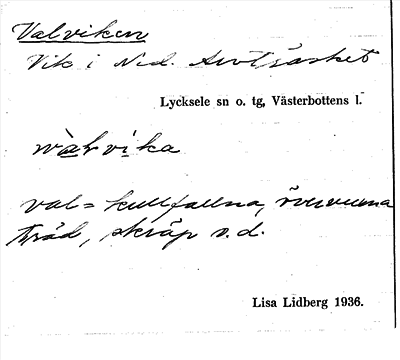 Valviken
Vik i Ned. Avaträsket
Lycksele sn o. tg, Västerbottens l.
val = kullfallna,
träd, skräp o.d.
Lisa Lidberg 1936.